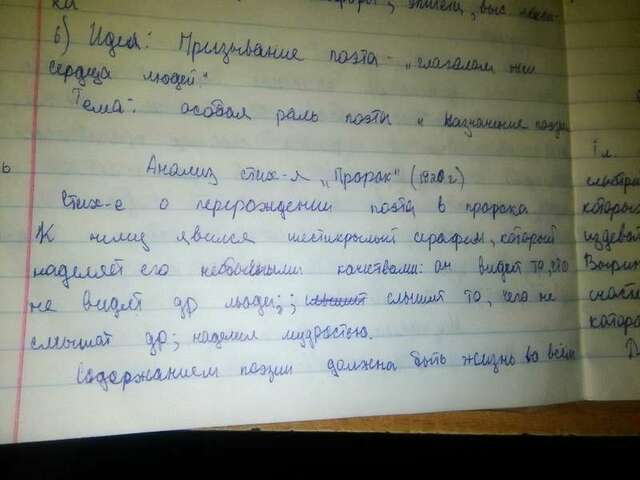 ка
6) Идея: Призывание поэта - „глаголом жги
сердца людей."
Тема: особая роль поэта и назначение поэзии
Анализ стих-я „Пророк" (1826г)
Стих-е о перерождении поэта в пророка
К нему явился шестикрылый серафим, который
наделяет его необычными качествами: он видит то, что
не видят др люди; ; слышит то, чего не
слышат др; наделил мудростью.
Содержанием поэзии должна быть жизнь во всём
ь
которы
издева
Д